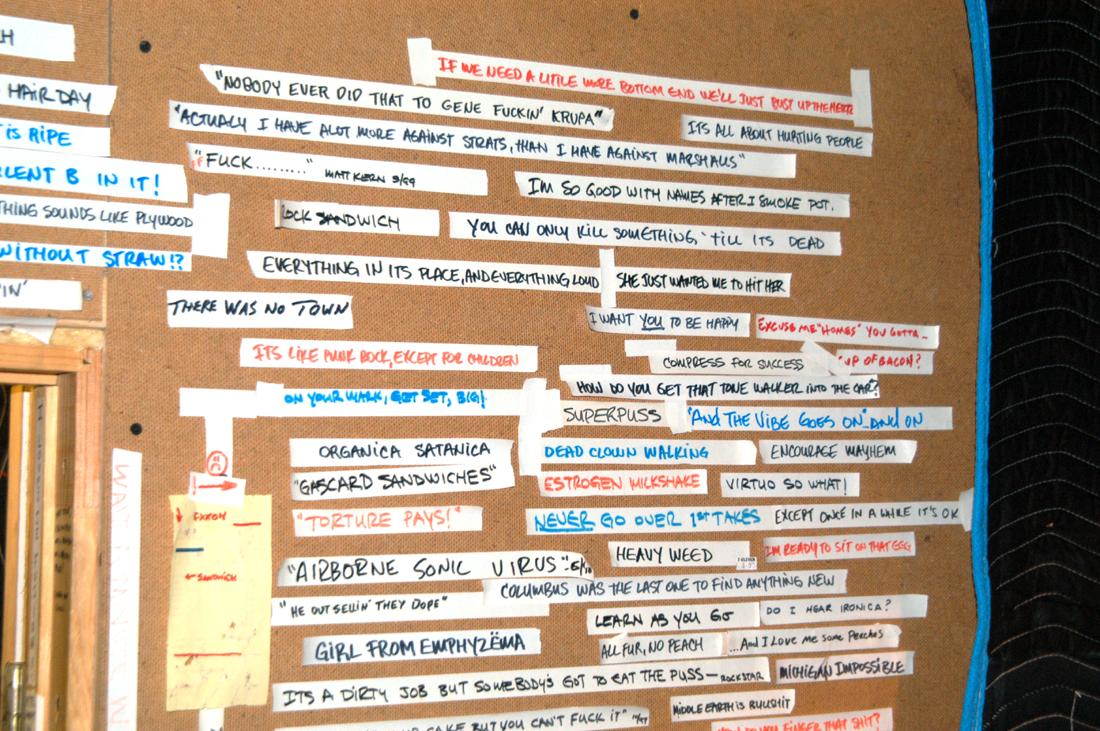 HAIR DAY
IS RIPE
B IN IT!
THING SOUNDS LIKE PLYWOOD
WITHOUT STRAW!?
IF WE NEED A LITTLE MORE BOTTOM END WE'LL JUST BUST UP THE MERTZ
"NOBODY EVER DID THAT TO GENE FUCKIN' KRUPA"
ITS ALL ABOUT HURTING PEOPLE
"ACTUALLY I HAVE ALOT MORE AGAINST STRATS, THAN I HAVE AGAINST MARSHALLS"
"FUCK........." MATT KERN 3/99
I'M SO GOOD WITH NAMES AFTER I SMOKE POT.
SANDWICH
YOU CAN ONLY KILL SOMETHING 'TILL ITS DEAD
EVERYTHING IN ITS PLACE, AND EVERYTHING LOUD
SHE JUST WANTED ME TO HIT HER
THERE WAS NO TOWN
I WANT YOU TO BE HAPPY
EXCUSE ME "HOMES" YOU GOTTA...
ITS LIKE PUNK ROCK, EXCEPT FOR CHILDREN
COMPRESS FOR SUCCESS
UP OF BACON?
HOW DO YOU GET THAT TONE WALKER INTO THE CAR?
ON YOUR MARK, GET SET, B(G)!
SUPERPUSS
"AND THE VIBE GOES ON" AND ON
ORGANICA SATANICA
DEAD CLOWN WALKING
ENCOURAGE MAYHEM
"GASCARD SANDWICHES"
ESTROGEN MILKSHAKE
VIRTUO SO WHAT!
EXXON
"TORTURE PAYS!"
NEVER GO OVER 1ST TAKES
EXCEPT ONCE IN A WHILE IT'S OK
HEAVY WEED
I'M READY TO SIT ON THAT EGG
SANDWICH
"AIRBORNE SONIC VIRUS"
COLUMBUS WAS THE LAST ONE TO FIND ANYTHING NEW
"HE OUT SELLIN' THEY DOPE"
LEARN AS YOU GO
DO I HEAR IRONICA?
GIRL FROM EMPHYZËMA
ALL FUR, NO PEACH
...And I Love me some Peaches
ITS A DIRTY JOB BUT SOMEBODY'S GOT TO EAT THE PUSS — ROCKSTAR
MICHIGAN IMPOSSIBLE
MIDDLE EARTH IS BULLSHIT
CAKE BUT YOU CAN'T FUCK IT"
YOU FINGER THAT SHIT?